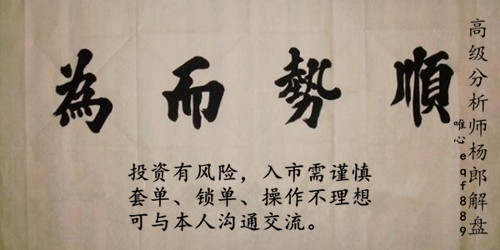 順勢而為
高级分析师杨郎解盘
唯心eqf889
投资有风险，入市需谨慎
套单、锁单、操作不理想
可与本人沟通交流。